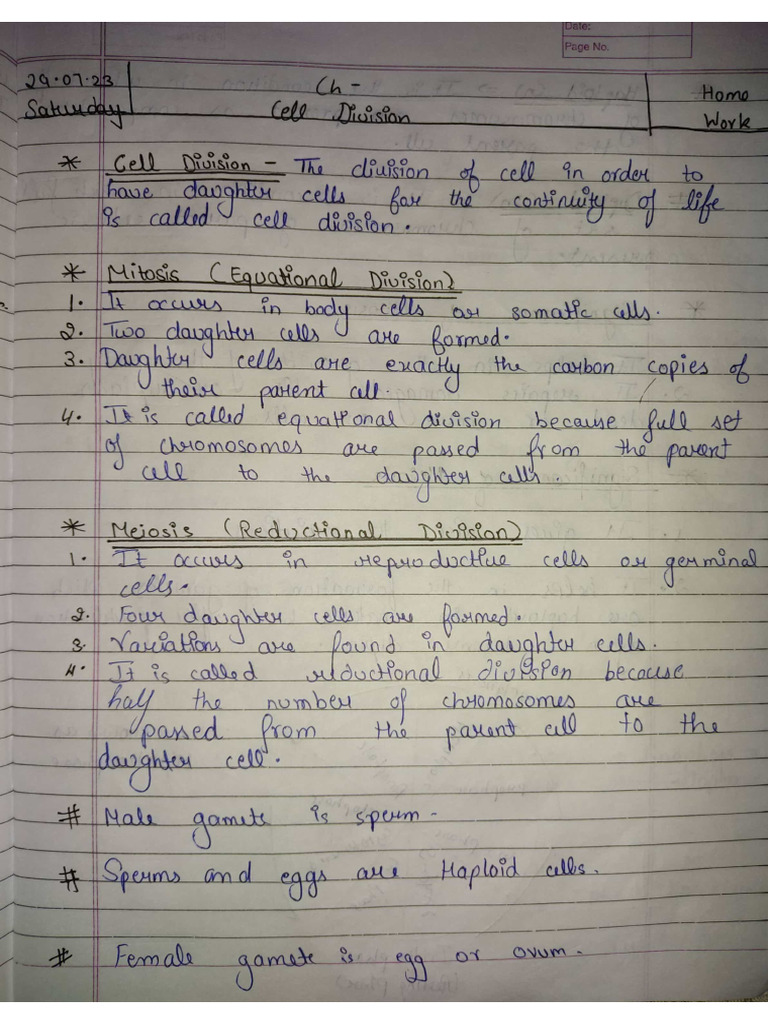 Date:
Page No.
29.07.23
Saturday
Ch -
Cell Division
Home
Work
* Cell Division - The division of cell in order to
have daughter cells for the continuity of life
is called cell division.
* Mitosis (Equational Division)
1. It occurs in body cells or somatic cells.
2. Two daughter cells are formed.
3. Daughter cells are exactly the carbon copies of
their parent cell.
4. It is called equational division because full set
of chromosomes are passed from the parent
cell to the daughter cells.
* Meiosis (Reductional Division)
1. It occurs in reproductive cells or germinal
cells.
2. Four daughter cells are formed.
3. Variations are found in daughter cells.
4. It is called reductional division because
half the number of chromosomes are
passed from the parent cell to the
daughter cell.
# Male gamete is sperm.
# Sperms and eggs are Haploid cells.
# Female gamete is egg or ovum.